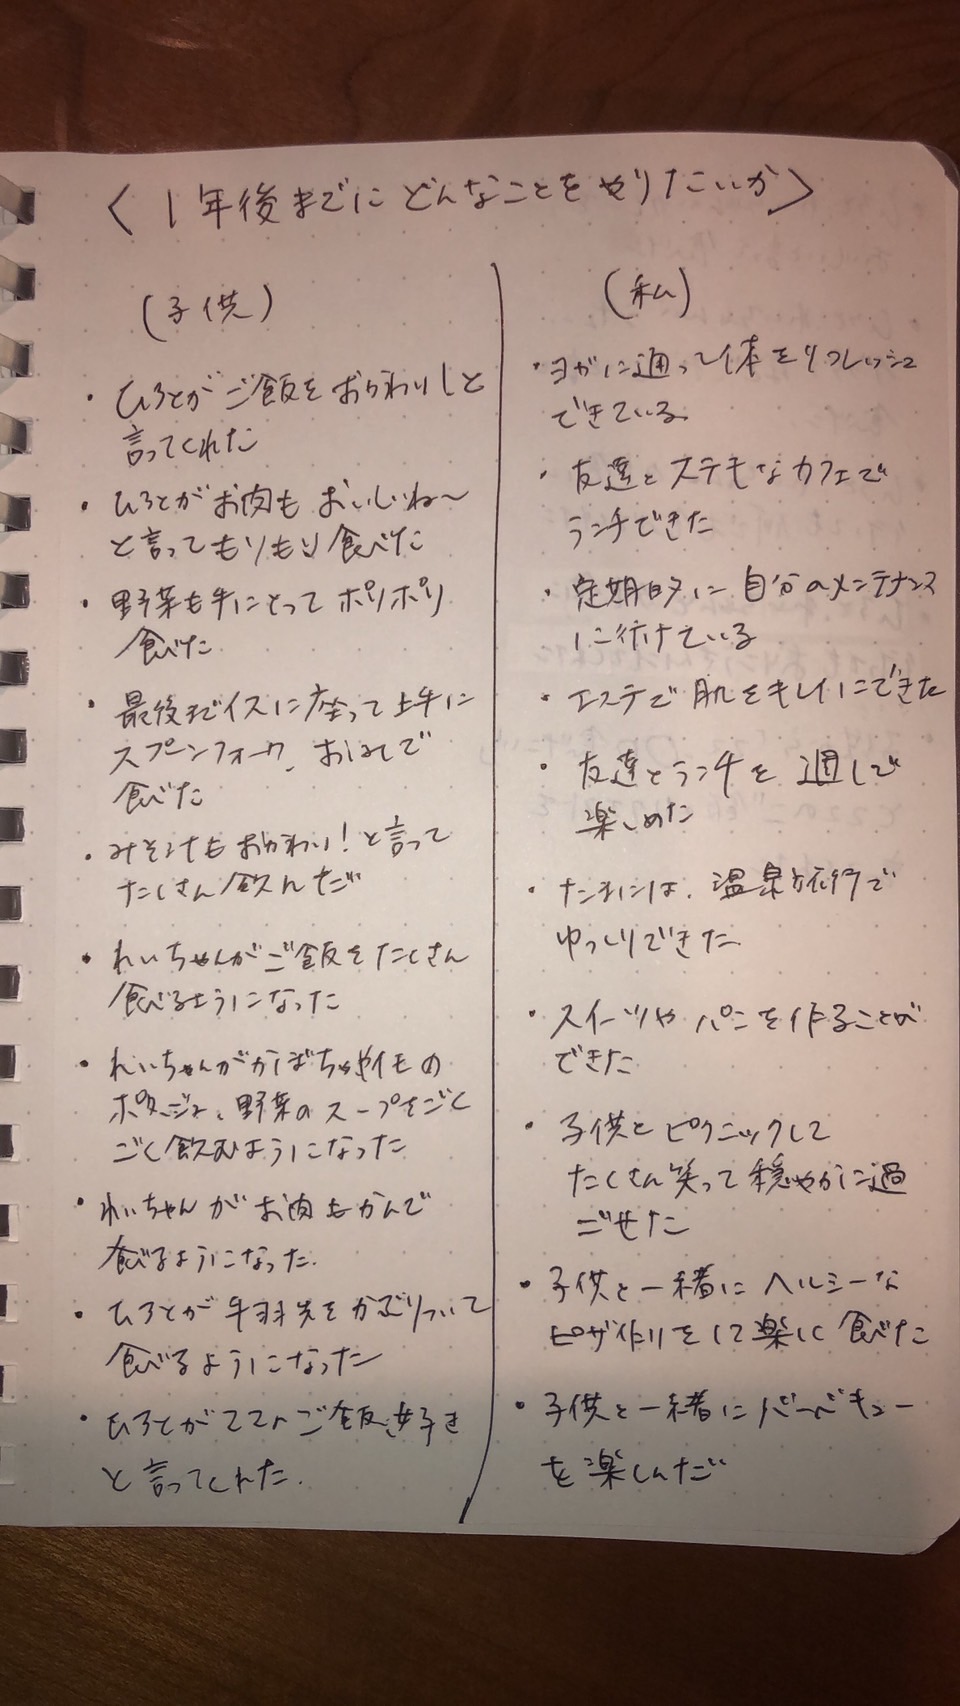 〈1年後までにどんなことをやりたいか〉
(子供)
・ひろとがご飯をおかわりしと
言ってくれた
・ひろとがお肉もおいしいね〜
と言ってもりもり食べた
・野菜も手にとってポリポリ
食べた
・最後までイスに座って上手に
スプーンフォーク、おはしで
食べた
・みそ汁もおかわり!と言って
たくさん飲んだ
・れいちゃんがご飯をたくさん
食べるようになった
・れいちゃんがかぼちゃやイモの
ポタージュ、野菜のスープをごく
ごく飲むようになった
・れいちゃんがお肉もかんで
食べるようになった.
・ひろとが手羽先をかぶりついて
食べるようになった
・ひろとがママのご飯好き
と言ってくれた.
(私)
・ヨガに通って体をリフレッシュ
できている.
・友達とステキなカフェで
ランチできた
・定期的に自分のメンテナンス
に行けている
・エステで肌をキレイにできた
・友達とランチを通して
楽しめた
・たまには、温泉旅行で
ゆっくりできた.
・スイーツやパンを作ることが
できた
・子供とピクニックして
たくさん笑って穏やかに過
ごせた
・子供と一緒にヘルシーな
ピザ作りをして楽しく食べた
・子供と一緒にバーベキュー
を楽しんだ